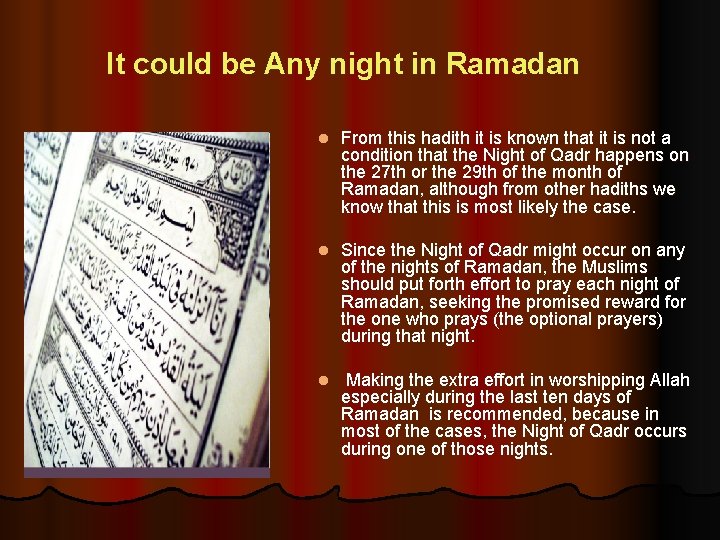 It could be Any night in Ramadan
إِنَّا أَنْزَلْنَاهُ فِي لَيْلَةِ الْقَدْرِ
From this hadith it is known that it is not a
condition that the Night of Qadr happens on
the 27th or the 29th of the month of
Ramadan, although from other hadiths we
know that this is most likely the case.
Since the Night of Qadr might occur on any
of the nights of Ramadan, the Muslims
should put forth effort to pray each night of
Ramadan, seeking the promised reward for
the one who prays (the optional prayers)
during that night.
Making the extra effort in worshipping Allah
especially during the last ten days of
Ramadan is recommended, because in
most of the cases, the Night of Qadr occurs
during one of those nights.